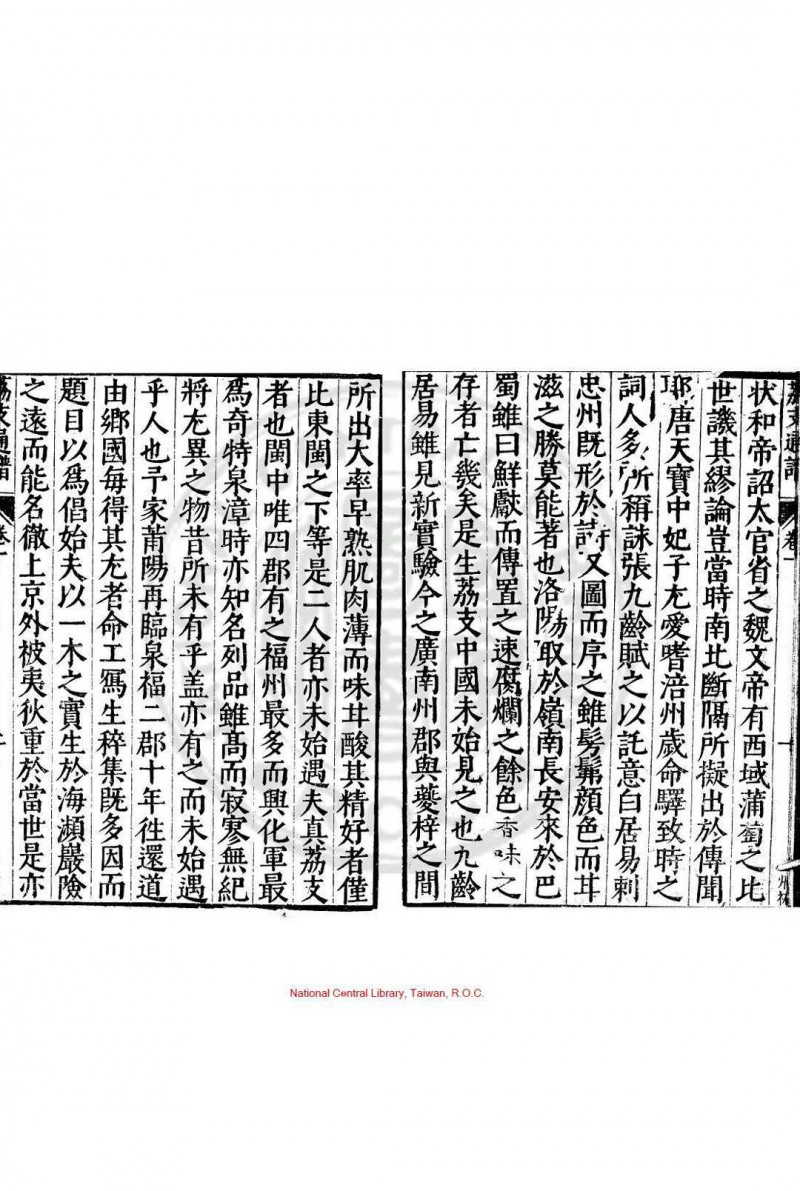 荔支通譜 卷一
状和帝詔太官省之魏文帝有西域蒲萄之比
世譏其繆論豈當時南北斷隔所擬出於傳聞
耶唐天寶中妃子尤愛嗜涪州歲命驛致時之
詞人多所稱詠張九齡賦之以託意白居易刺
忠州既形於詩又圖而序之雖髣髴顏色而甘
滋之勝莫能著也洛陽取於嶺南長安來於巴
蜀雖曰鮮獻而傳置之速腐爛之餘色香味之
存者亡幾矣是生荔支中國未始見之也九齡
居易雖見新實驗今之廣南州郡與夔梓之間
所出大率早熟肌肉薄而味甘酸其精好者僅
比東閩之下等是二人者亦未始遇夫真荔支
者也閩中唯四郡有之福州最多而興化軍最
爲奇特泉漳時亦知名列品雖髙而寂寥無紀
將尤異之物昔所未有乎盖亦有之而未始遇
乎人也予家莆陽再臨泉福二郡十年徃還道
由鄉國每得其尤者命工寫生稡集既多因而
題目以爲倡始夫以一木之實生於海瀕巖險
之遠而能名徹上京外被夷狄重於當世是亦
荔支通譜 卷一
National Central Library, Taiwan, R.O.C.